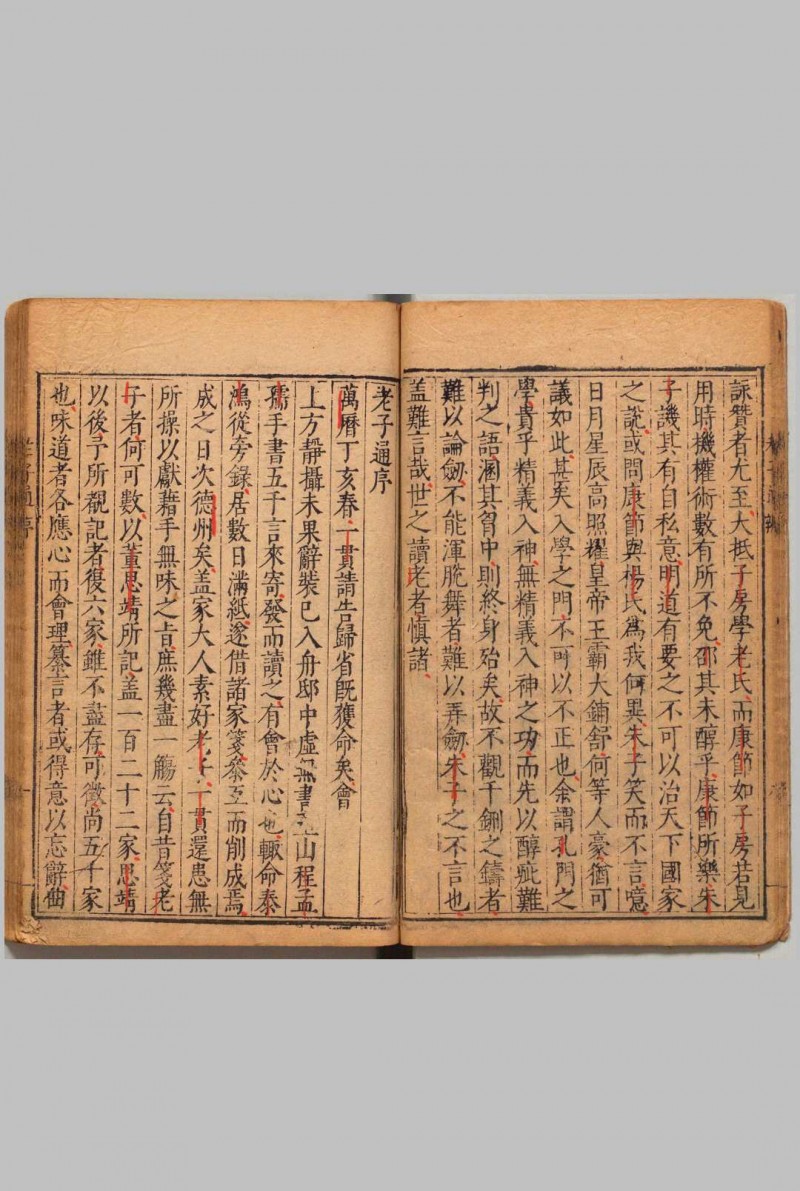 詠贊者尤至大抵子房學老氏而康節如子房若見
用時機權術數有所不免邵其未醇乎康節所樂朱
子譏其有自私意明道有要之不可以治天下國家
之說或問康節與楊氏為我何異朱子笑而不言噫
日月星辰高照耀皇帝王霸大鋪舒何等人豪猶可
議如此甚矣入學之門不可以不正也余謂孔門之
學貴乎精義入神無精義入神之功而先以醇疵難
判之語溷其胷中則終身殆矣故不觀千鉶之鑄者
難以論劒不能渾脫舞者難以弄劒朱子之不言也
盖難言哉世之讀老者慎諸
老子通序
萬曆丁亥春一貫請告歸省既獲命矣會
上方靜攝未果辭裝已入舟邸中虛無書山程孟
孺手書五千言來寄發而讀之有會於心也輙命泰
鴻從旁錄居數日滿紙遂借諸家箋叅互而削成焉
成之日次德州矣盖家大人素好老子一貫還患無
所操以獻藉手無味之旨庶幾盡一觴云自昔箋老
子者何可數以董思靖所記盖一百二十二家思靖
以後予所覩記者復六家雖不盡存可徵尚五十家
也味道者各應心而會理纂言者或得意以忘辭曲